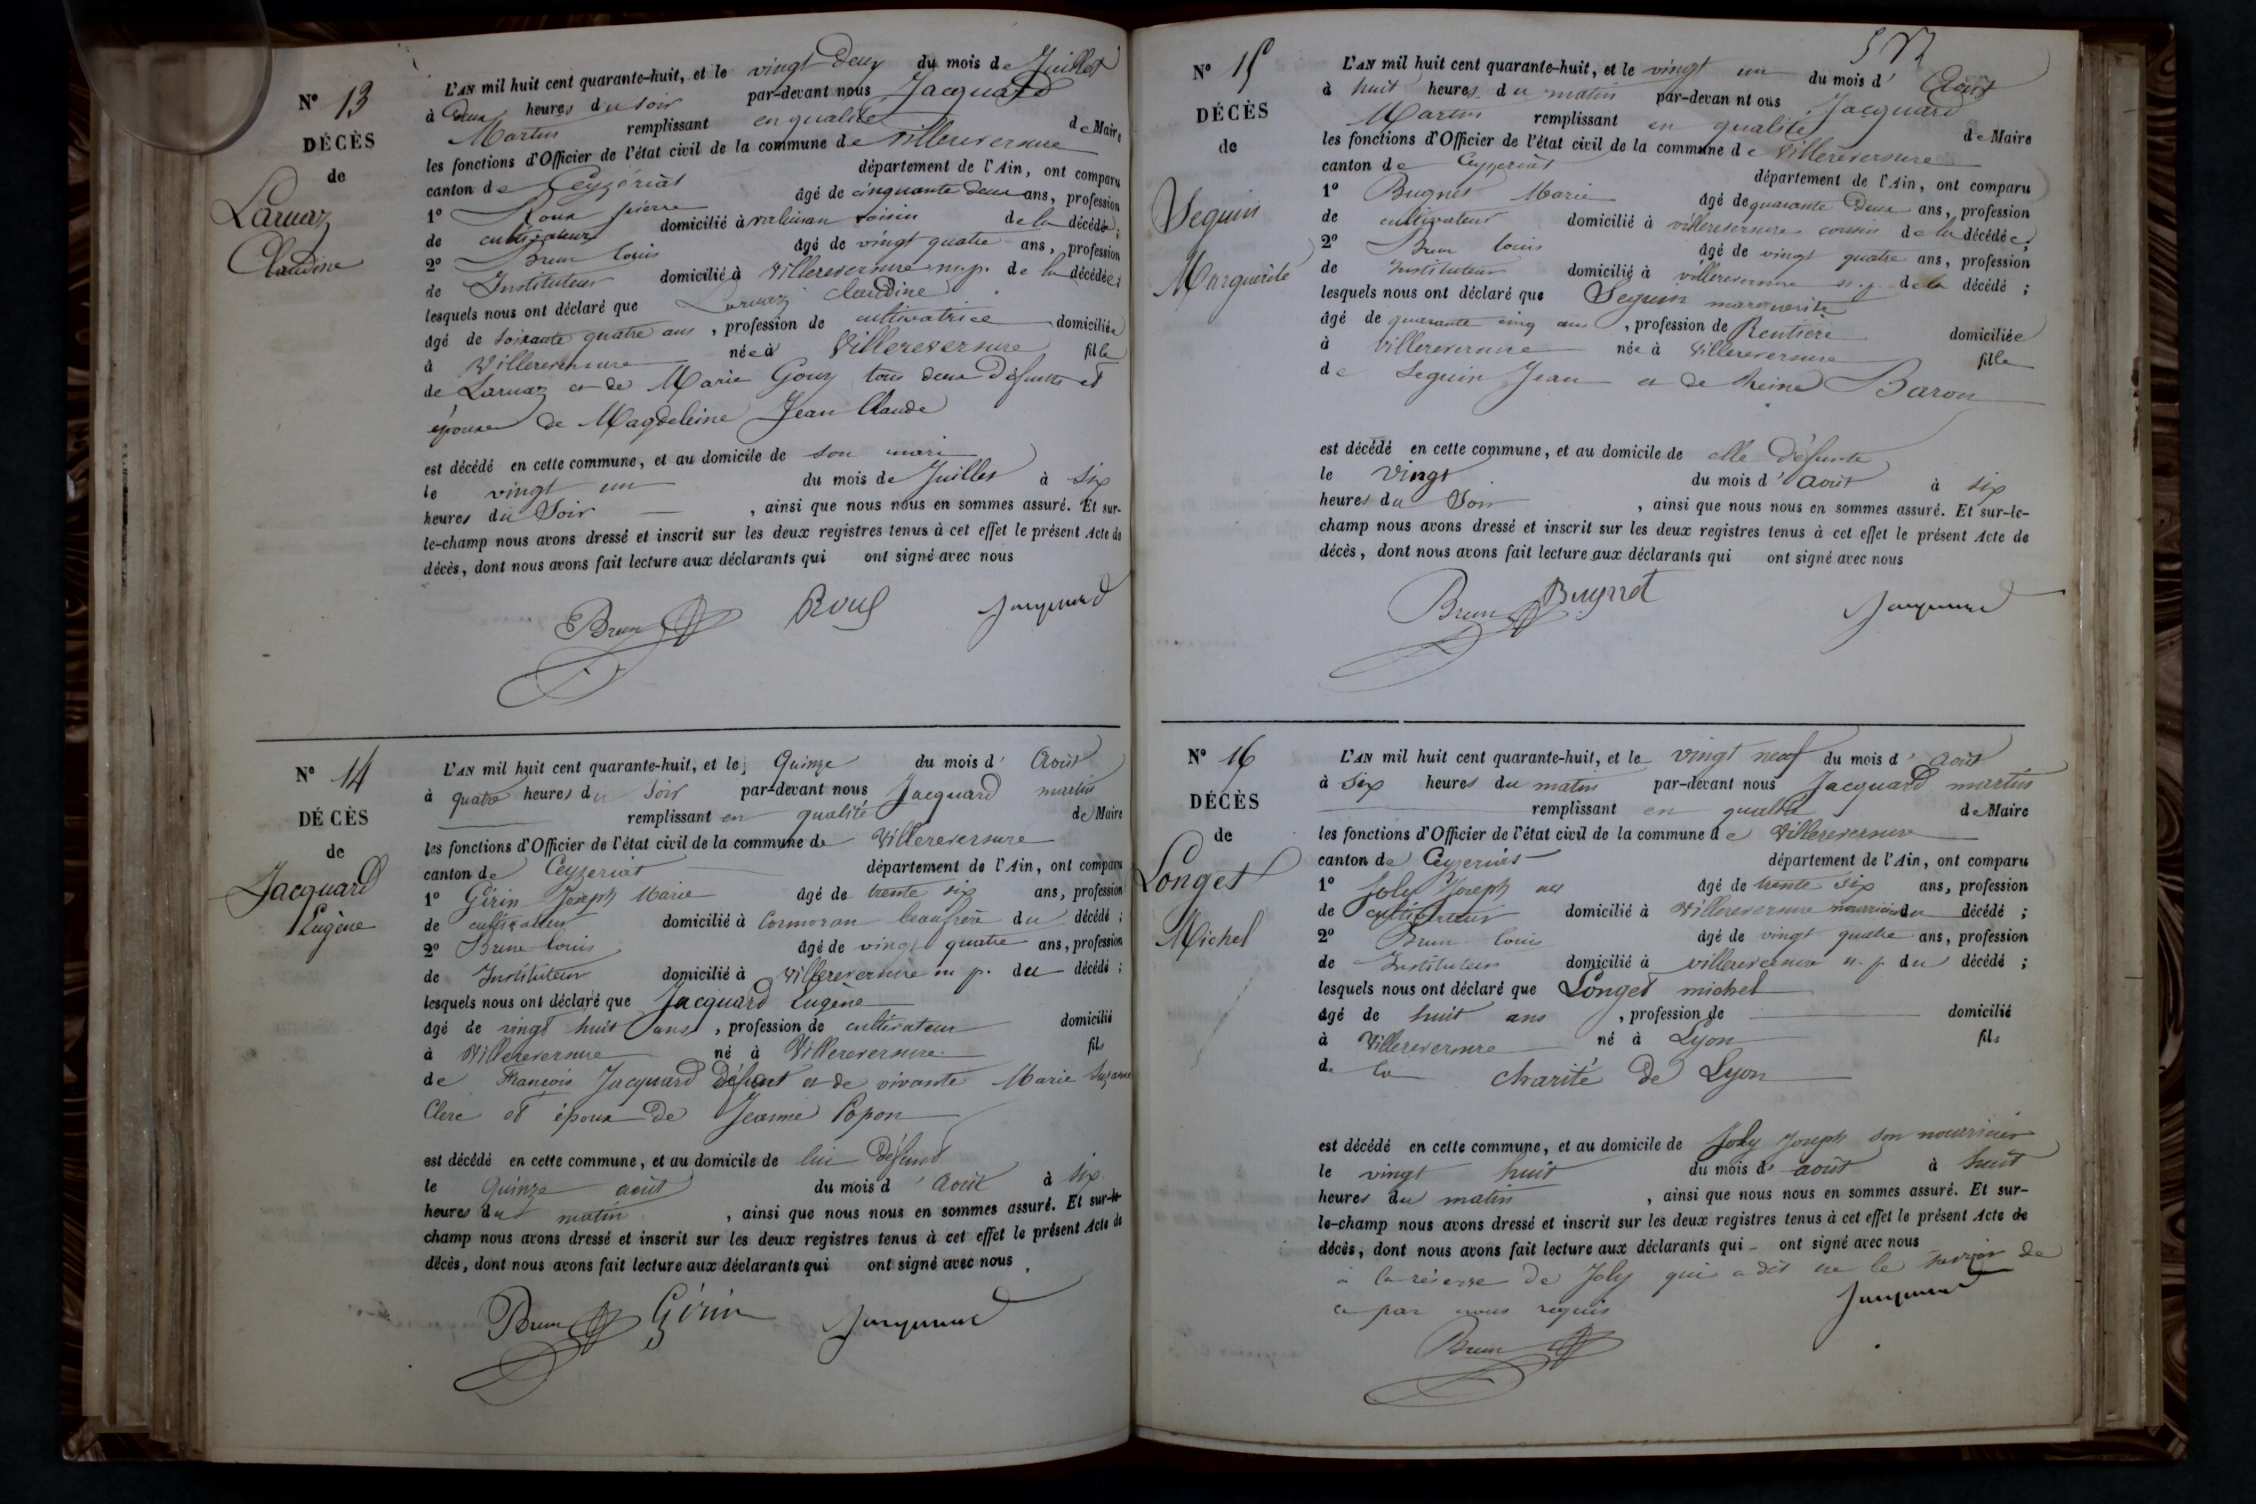 N° 13
DÉCÈS
de
Laruaz
Claudine
L'AN mil huit cent quarante-huit, et le vingt deux du mois de Juillet
à deux heures du soir par-devant nous Jacquard
Martin remplissant en qualité de Maire
les fonctions d'Officier de l'état civil de la commune de Villereversure
canton de Ceyzériat département de l'Ain, ont comparu
1° Roux pierre âgé de cinquante deux ans, profession
de cultivateur domicilié à voisin de la décédée;
2° Brun louis âgé de vingt quatre ans, profession
de Instituteur domicilié à Villereversure n. p. de la décédée;
lesquels nous ont déclaré que Laruaz claudine
âgé de soixante quatre ans, profession de cultivatrice domiciliée
à Villereversure née à Villereversure fille
de Laruaz et de Marie Gouy tous deux défunts et
épouse de Magdeleine Jean Claude
est décédé en cette commune, et au domicile de son mari
le vingt un du mois de Juillet à six
heures du Soir, ainsi que nous nous en sommes assuré. Et sur-
le-champ nous avons dressé et inscrit sur les deux registres tenus à cet effet le présent Acte de
décès, dont nous avons fait lecture aux déclarants qui ont signé avec nous
Brun Roux Jacquard
N° 14
DÉCÈS
de
Jacquard
Eugène
L'AN mil huit cent quarante-huit, et le Quinze du mois d' Août
à quatre heures du Soir par-devant nous Jacquard martin
remplissant en qualité de Maire
les fonctions d'Officier de l'état civil de la commune de Villereversure
canton de Ceyzeriat département de l'Ain, ont comparu
1° Gérin Joseph Marie âgé de trente six ans, profession
de cultivateur domicilié à Cormoran beaufrère du décédé;
2° Brun louis âgé de vingt quatre ans, profession
de Instituteur domicilié à Villereversure n. p. du décédé;
lesquels nous ont déclaré que Jacquard Eugène
âgé de vingt huit ans, profession de cultivateur domicilié
à Villereversure né à Villereversure fils
de François Jacquard Défunt et de vivante Marie Suzanne
Clerc et époux de Jeanne Popon
est décédé en cette commune, et au domicile de lui Défunt
le Quinze août du mois d' Août à six
heures du matin, ainsi que nous nous en sommes assuré. Et sur-le-
champ nous avons dressé et inscrit sur les deux registres tenus à cet effet le présent Acte de
décès, dont nous avons fait lecture aux déclarants qui ont signé avec nous
Brun Gérin Jacquard
N° 15
DÉCÈS
de
Seguin
Marguerite
L'AN mil huit cent quarante-huit, et le vingt un du mois d' Août
à huit heures du matin par-devan nt ous Jacquard
Martin remplissant en qualité de Maire
les fonctions d'Officier de l'état civil de la commune de Villereversure
canton de Ceyzeriat département de l'Ain, ont comparu
1° Bugnet Marie âgé de quarante Deux ans, profession
de cultivateur domicilié à villereversure cousin de la décédée;
2° Brun louis âgé de vingt quatre ans, profession
de Instituteur domicilié à villereversure n. p. de la décédé;
lesquels nous ont déclaré que Seguin marguerite
âgé de quarante cinq ans, profession de Rentière domiciliée
à Villereversure née à Villereversure fille
de Seguin Jean et de Reine Baron
est décédé en cette commune, et au domicile de elle Défunte
le Vingt du mois d' août à six
heures du Soir, ainsi que nous nous en sommes assuré. Et sur-le-
champ nous avons dressé et inscrit sur les deux registres tenus à cet effet le présent Acte de
décès, dont nous avons fait lecture aux déclarants qui ont signé avec nous
Brun Bugnet Jacquard
N° 16
DÉCÈS
de
Longet
Michel
L'AN mil huit cent quarante-huit, et le Vingt neuf du mois d' Août
à Six heures du matin par-devant nous Jacquard martin
remplissant en qualité de Maire
les fonctions d'Officier de l'état civil de la commune de Villereversure
canton de Ceyzeriat département de l'Ain, ont comparu
1° Joly Joseph âgé de trente six ans, profession
de cultivateur domicilié à Villereversure nourricier du décédé;
2° Brun louis âgé de vingt quatre ans, profession
de Instituteur domicilié à villereversure n. p. du décédé;
lesquels nous ont déclaré que Longet michel
âgé de huit ans, profession de domicilié
à Villereversure né à Lyon fils
de la charité de Lyon
est décédé en cette commune, et au domicile de Joly Joseph son nourricier
le vingt huit du mois d' août à huit
heures du matin, ainsi que nous nous en sommes assuré. Et sur-
le-champ nous avons dressé et inscrit sur les deux registres tenus à cet effet le présent Acte de
décès, dont nous avons fait lecture aux déclarants qui ont signé avec nous
à la réserve de Joly qui a dit ne le savoir de
ce par nous requis
Brun Jacquard